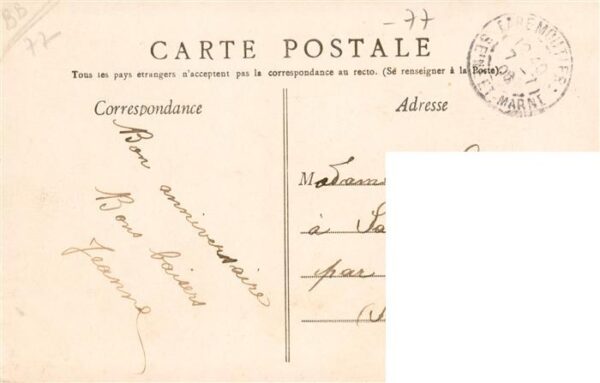 BB
77
-77
CARTE POSTALE
Tous les pays étrangers n'acceptent pas la correspondance au recto. (Se renseigner à la Poste).
Correspondance
Adresse
Bon anniversaire
Bons baisers
Jeanne
Madame
à
par
SEINE-ET-MARNE